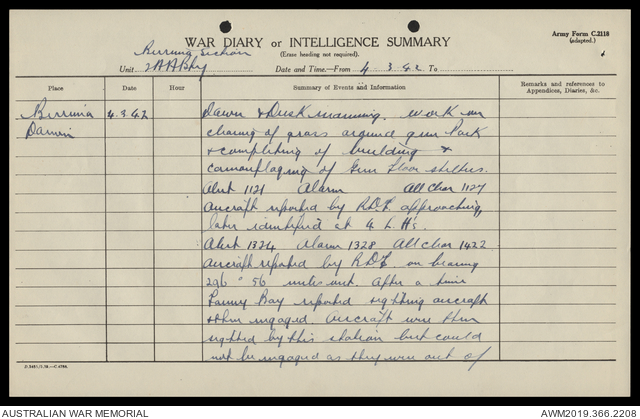 Army Form C.2118
(adapted.)
WAR DIARY or INTELLIGENCE SUMMARY
(Erase heading not required).
Berrima Section
Unit 2 A A Bty Date and Time.—From 4 3.42 To
Place Date Hour Summary of Events and Information Remarks and references to Appendices, Diaries, &c.
Berrima 4.3.42 Dawn & Dusk manning. Work on
Darwin clearing of grass around gun Park
& completing of building &
camouflaging of Gun floor shelters.
Alert 1121 Alarm All Clear 1127
Aircraft reported by RDF approaching,
later identified at 4 LH's.
Alert 1324 Alarm 1328 All Clear 1422
Aircraft reported by RDF on bearing
296° 56 miles out. After a time
Fanny Bay reported sighting aircraft
& then engaged. Aircraft were then
sighted by this station but could
not be engaged as they were out of
AUSTRALIAN WAR MEMORIAL AWM2019.366.2208